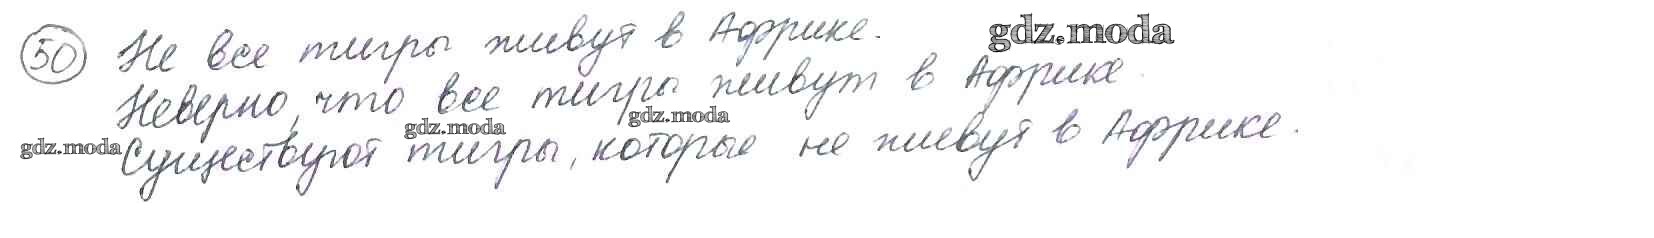 50 Не все тигры живут в Африке. gdz.moda
Неверно, что все тигры живут в Африке.
gdz.moda gdz.moda
gdz.moda Существуют тигры, которые не живут в Африке.